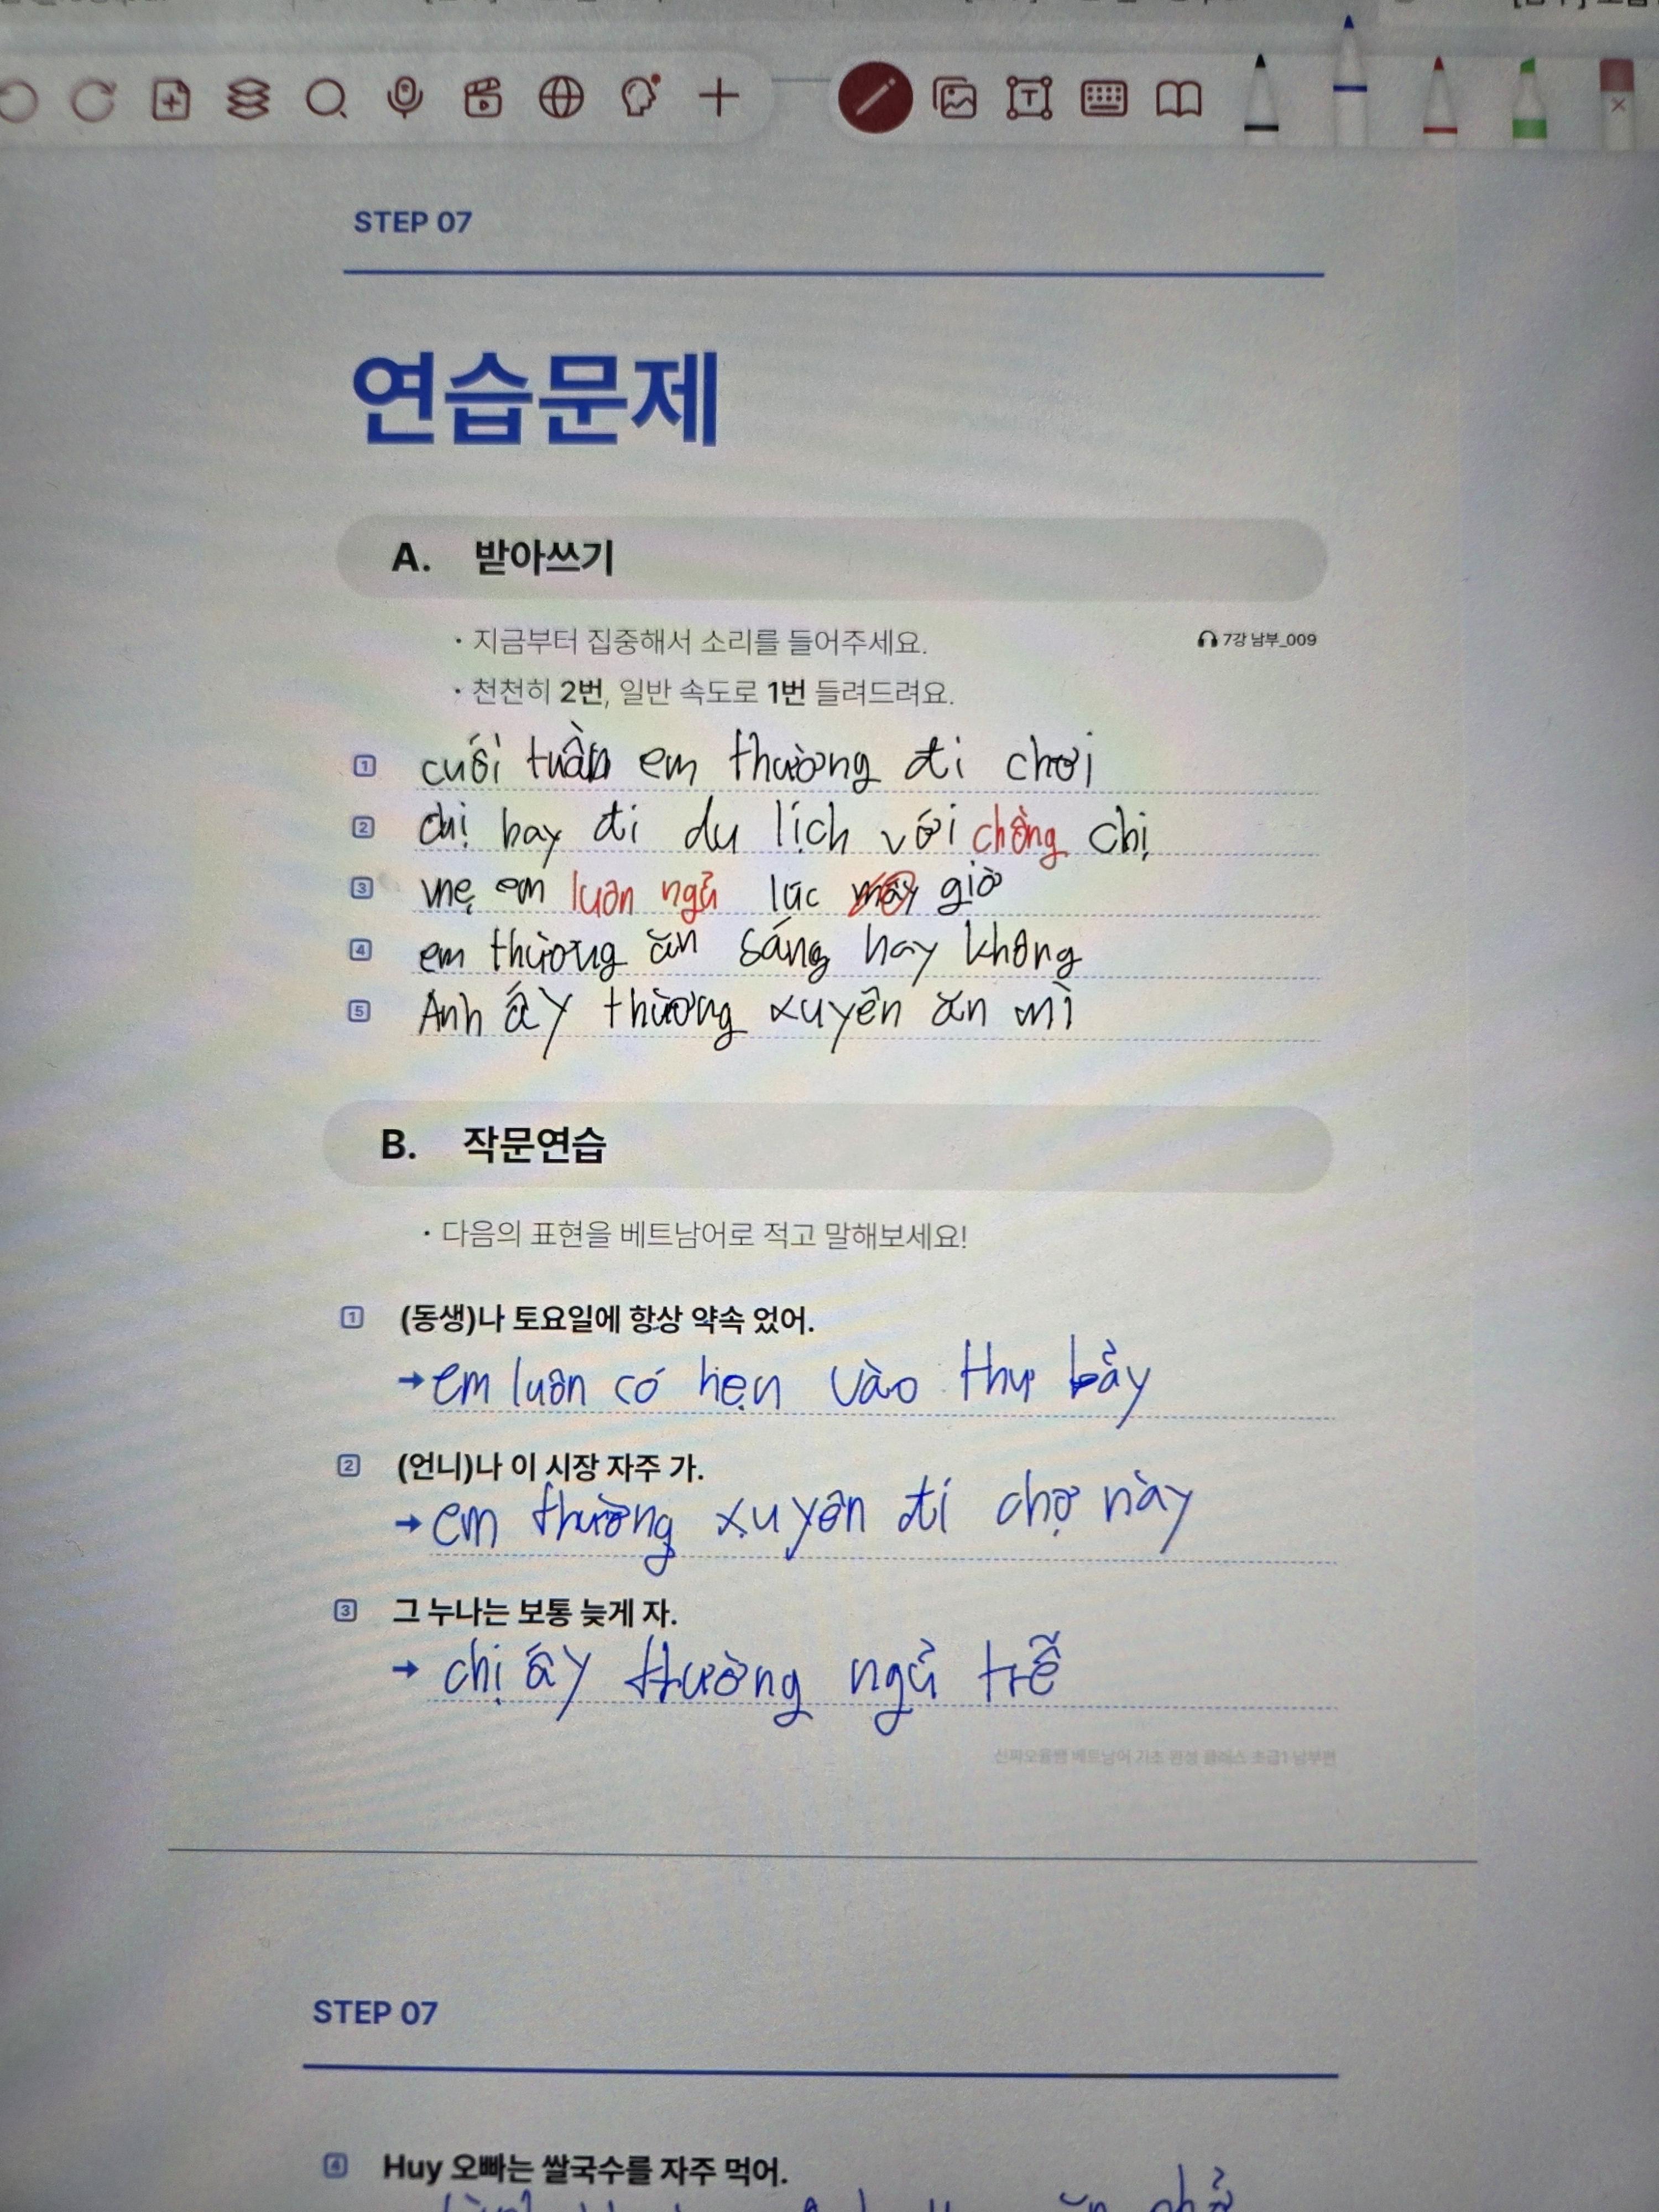 STEP 07
연습문제
A. 받아쓰기
• 지금부터 집중해서 소리를 들어주세요.
7강 남부_009
• 천천히 2번, 일반 속도로 1번 들려드려요.
1 cuối tuần em thường đi chơi
2 chị hay đi du lịch với chồng chị
3 mẹ em luôn ngủ lúc mấy giờ
4 em thường ăn sáng hay không
5 Anh ấy thường xuyên ăn mì
B. 작문연습
• 다음의 표현을 베트남어로 적고 말해보세요!
1 (동생)나 토요일에 항상 약속 었어.
→ em luôn có hẹn vào thư bảy
2 (언니)나 이 시장 자주 가.
→ em thường xuyên đi chợ này
3 그 누나는 보통 늦게 자.
→ chị ấy thường ngủ trễ
베트남어 기초 완성 클래스 초급1 남부편
STEP 07
4 Huy 오빠는 쌀국수를 자주 먹어.